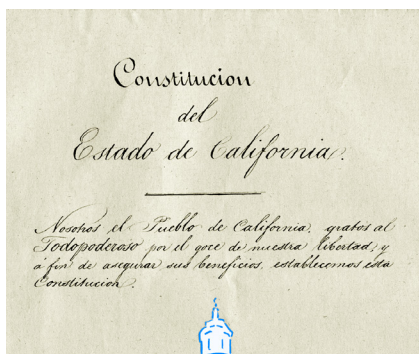 Constitucion
del
Estado de California.
Nosotros el Pueblo de California, gratos al
Todopoderoso por el goce de nuestra libertad, y
á fin de asegurar sus beneficios, establecemos esta
Constitucion.